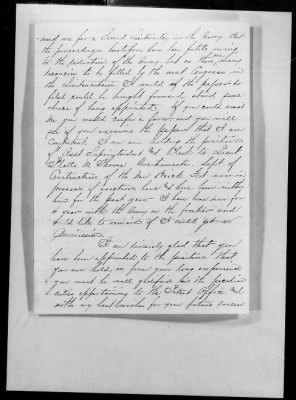 me for a Second Lieutenantcy in the Army that
the proceedings heretofore have been futile owing
to the reduction of the Army, but as there many
vacancies to be filled by the next Congress in
the Lieutenantcies I would if the papers on
filed could be brought forward stand some
show of being appointed. If you could assist
me you would confer a favor and you will
see if you examine the papers that I am
competent. I am now holding the position
of Asst Superintendent & Clerk to Lieut
M. Supt of
Construction of the New Brick now in
process of erection here & have been with
him for the past year. I have been now for
a year with the Army on the frontier and
would like to remain if I could get a
Commission.
I am sincerely glad that you
have been appointed to the position that
you now hold, as from your long experience
you must be well qualified for the peculiar
duties appertaining to the Patent Office &
with my best wishes for your future success